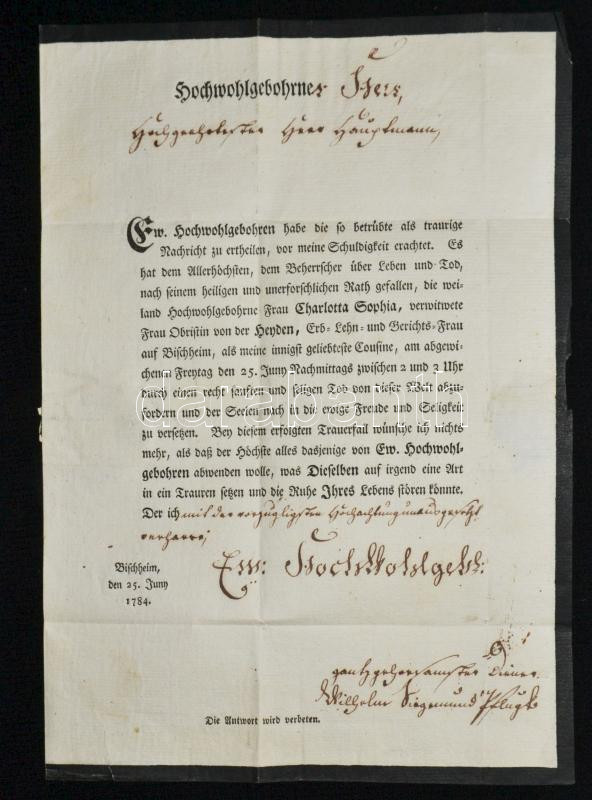 Hochwohlgebohrner Herr,
Hochgeehrtester Herr Hauptmann,
Ew. Hochwohlgebohren habe die so betrübte als traurige
Nachricht zu ertheilen, vor meine Schuldigkeit erachtet. Es
hat dem Allerhöchsten, dem Beherrscher über Leben und Tod,
nach seinem heiligen und unerforschlichen Rath gefallen, die wei-
land Hochwohlgebohrne Frau Charlotta Sophia, verwitwete
Frau Obristin von der Heyden, Erb- Lehn- und Gerichts-Frau
auf Bischheim, als meine innigst geliebteste Cousine, am abgewi-
chenen Freytag den 25. Juny Nachmittags zwischen 2 und 3 Uhr
durch einen recht sanften und seligen Tod von dieser Welt abzu-
fordern und der Seelen nach in die ewige Freude und Seligkeit
zu versetzen. Bey diesem erfolgten Trauerfall wünsche ich nichts
mehr, als daß der Höchste alles dasjenige von Ew. Hochwohl-
gebohren abwenden wolle, was Dieselben auf irgend eine Art
in ein Trauren setzen und die Ruhe Ihres Lebens stören könnte.
Der ich mit der vorzügligsten Hochachtung unausgesetzt
verharre,
Ew: Hochwohlgeb:
Bischheim,
den 25. Juny
1784.
gantz gehorsamster Diener
Wilhelm Siegemund Pflugk
Die Antwort wird verbeten.
darabanth